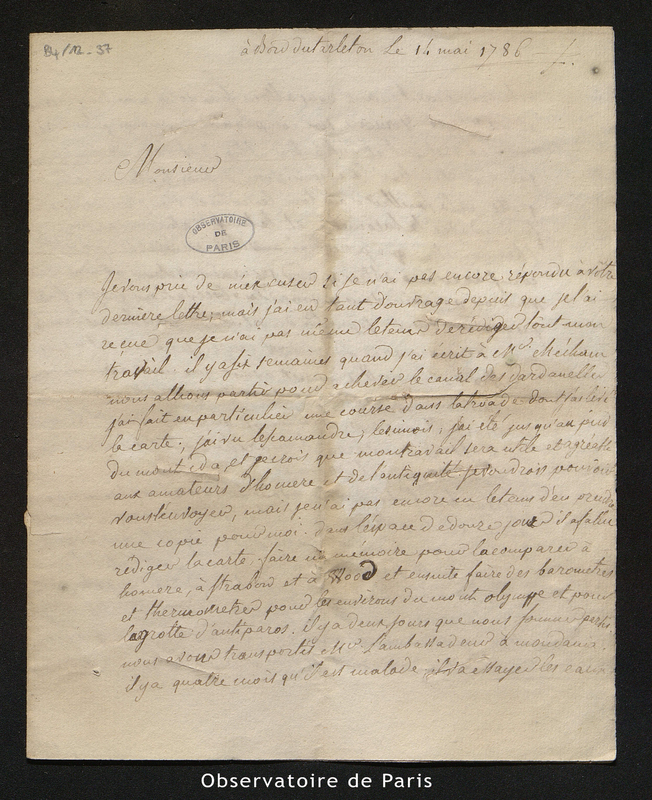 B4/12-37
à Bord du tarleton Le 14 mai 1786
Monsieur
OBSERVATOIRE
DE
PARIS
Je vous prie de m'excuser si je n'ai pas encore répondu à votre
derniere lettre, mais j'ai eu tant d'ouvrage depuis que je l'ai
reçue que je n'ai pas même le tems de rédiger tout mon
travail. il y a six semaines quand j'ai écrit à Mr Méchain
nous allions partir pour achever le canal des dardanelles
j'ai fait en particulier une course dans la troade dont j'ai levé
la carte; j'ai vu le scamandre, le simois; j'ai été jusqu'au pied
du mont ida, et je crois que mon travail sera utile et agreable
aux amateurs d'homere et de l'antiquité. je voudrois pouvoir
vous l'envoyer, mais je n'ai pas encore eu le tems d'en prendre
une copie pour moi. dans l'espace de douze jours il a fallu
rédiger la carte, faire un mémoire pour la comparer à
homere, à strabon et à Wood et ensuite faire des barometres
et thermometres pour les environs du mont olympe et pour
la grotte d'antiparos. il y a deux jours que nous sommes partis
nous avons transporté Mr l'ambassadeur à moudania.
il y a quatre mois qu'il est malade, il va essayer les eaux
Observatoire de Paris